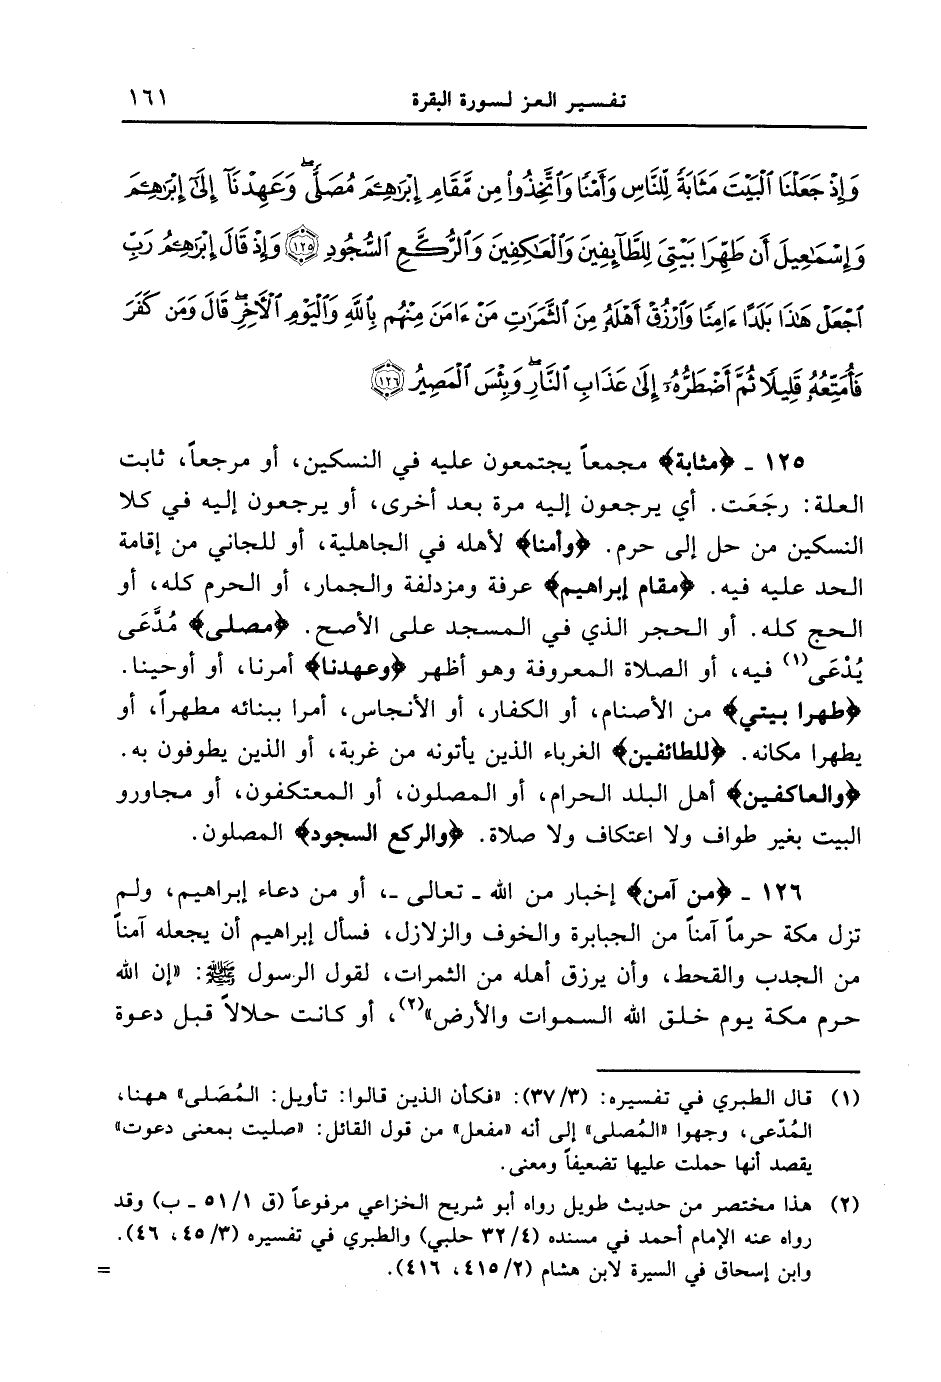 تفسير العز لسورة البقرة ١٦١
وَإِذْ جَعَلْنَا ٱلْبَيْتَ مَثَابَةً لِّلنَّاسِ وَأَمْنًا وَٱتَّخِذُوا۟ مِن مَّقَامِ إِبْرَٰهِـۧمَ مُصَلًّى ۖ وَعَهِدْنَآ إِلَىٰٓ إِبْرَٰهِـۧمَ
وَإِسْمَٰعِيلَ أَن طَهِّرَا بَيْتِىَ لِلطَّآئِفِينَ وَٱلْعَٰكِفِينَ وَٱلرُّكَّعِ ٱلسُّجُودِ ١٢٥ وَإِذْ قَالَ إِبْرَٰهِـۧمُ رَبِّ
ٱجْعَلْ هَٰذَا بَلَدًا ءَامِنًا وَٱرْزُقْ أَهْلَهُۥ مِنَ ٱلثَّمَرَٰتِ مَنْ ءَامَنَ مِنْهُم بِٱللَّهِ وَٱلْيَوْمِ ٱلْأَخِرِ ۖ قَالَ وَمَن كَفَرَ
فَأُمَتِّعُهُۥ قَلِيلًا ثُمَّ أَضْطَرُّهُۥٓ إِلَىٰ عَذَابِ ٱلنَّارِ ۖ وَبِئْسَ ٱلْمَصِيرُ ١٢٦
١٢٥ ـ ﴿مثابة﴾ مجمعاً يجتمعون عليه في النسكين، أو مرجعاً، ثابت
العلة: رجَعَت. أي يرجعون إليه مرة بعد أخرى، أو يرجعون إليه في كلا
النسكين من حل إلى حرم. ﴿وأمنا﴾ لأهله في الجاهلية، أو للجاني من إقامة
الحد عليه فيه. ﴿مقام إبراهيم﴾ عرفة ومزدلفة والجمار، أو الحرم كله، أو
الحج كله. أو الحجر الذي في المسجد على الأصح. ﴿مصلى﴾ مُدَّعَى
يُدْعَى(١) فيه، أو الصلاة المعروفة وهو أظهر ﴿وعهدنا﴾ أمرنا، أو أوحينا.
﴿طهرا بيتي﴾ من الأصنام، أو الكفار، أو الأنجاس، أمرا ببنائه مطهراً، أو
يطهرا مكانه. ﴿للطائفين﴾ الغرباء الذين يأتونه من غربة، أو الذين يطوفون به.
﴿والعاكفين﴾ أهل البلد الحرام، أو المصلون، أو المعتكفون، أو مجاورو
البيت بغير طواف ولا اعتكاف ولا صلاة. ﴿والركع السجود﴾ المصلون.
١٢٦ ـ ﴿من آمن﴾ إخبار من الله ـ تعالى ـ، أو من دعاء إبراهيم، ولم
تزل مكة حرماً آمناً من الجبابرة والخوف والزلازل، فسأل إبراهيم أن يجعله آمناً
من الجدب والقحط، وأن يرزق أهله من الثمرات، لقول الرسول ﷺ: «إن الله
حرم مكة يوم خلق الله السموات والأرض»(٢)، أو كانت حلالاً قبل دعوة
(١) قال الطبري في تفسيره: (٣٧/٣): «فكأن الذين قالوا: تأويل: المُصَلى» ههنا،
المُدّعى، وجهوا «المُصلى» إلى أنه «مفعل» من قول القائل: «صليت بمعنى دعوت»
يقصد أنها حملت عليها تضعيفاً ومعنى.
(٢) هذا مختصر من حديث طويل رواه أبو شريح الخزاعي مرفوعاً (ق ٥١/١ ـ ب) وقد
رواه عنه الإمام أحمد في مسنده (٣٢/٤ حلبي) والطبري في تفسيره (٤٥/٣، ٤٦).
وابن إسحاق في السيرة لابن هشام (٤١٥/٢، ٤١٦). =